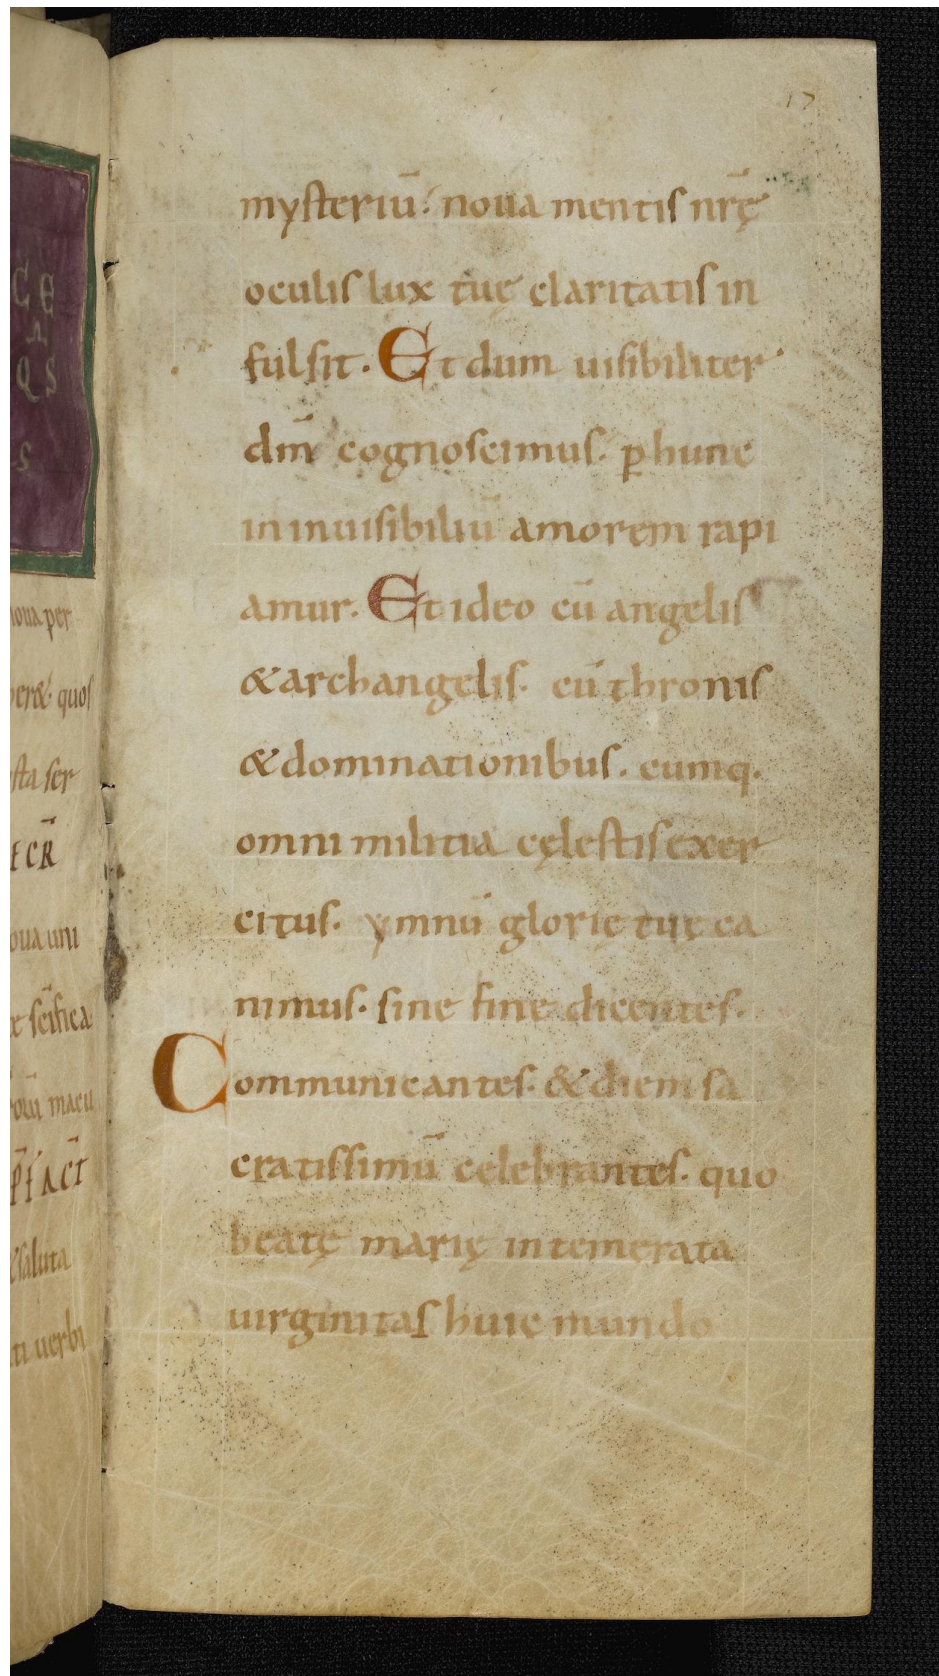 17
mysteriū· noua mentis nrę̄
oculis lux tuę claritatis in
fulsit. Et dum uisibiliter
dm̄ cognoscimus. ꝑ hunc
in inuisibiliū amorem rapi
amur. Et ideo cū angelis
& archangelis. cū thronis
& dominationibus. cumq.
omni militia cęlestis exer
citus. ymnū glorię tuę ca
nimus. sine fine dicentes.
Communicantes. & diem sa
cratissimū celebrantes. quo
beatę marię intemerata
uirginitas huic mundo